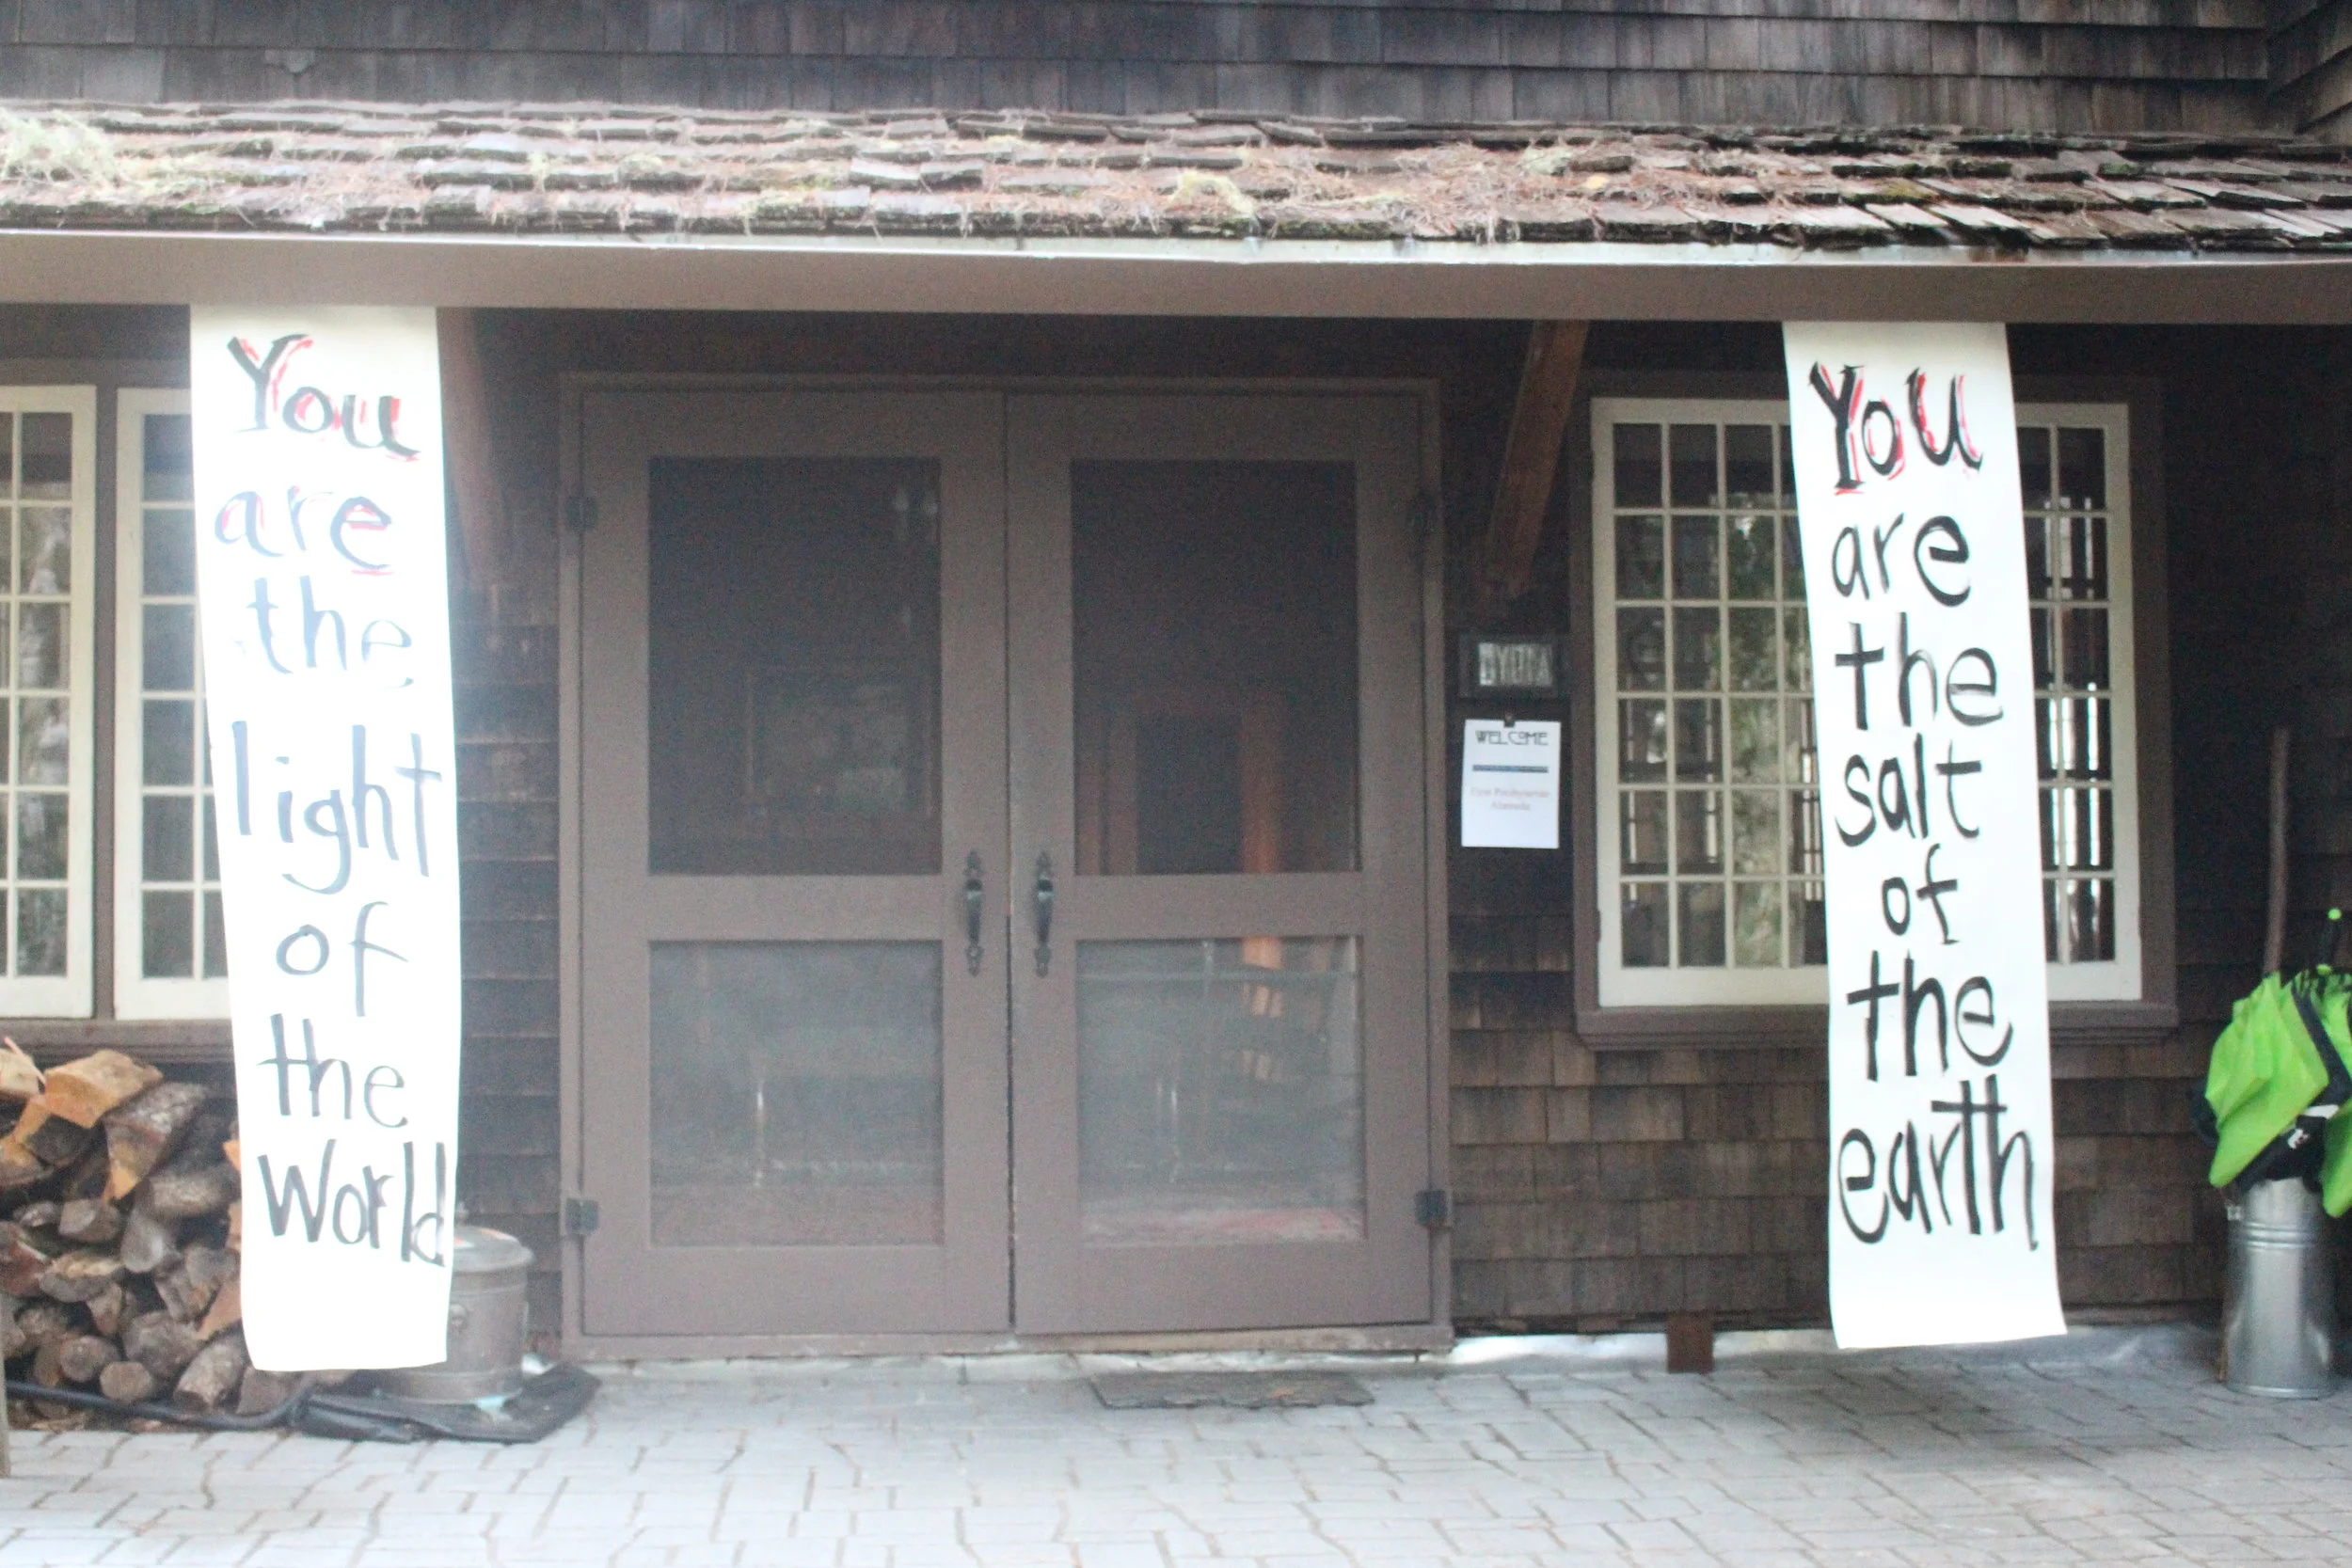 You
are
the
light
of
the
World
WELCOME
First Presbyterian
Alameda
You
are
the
salt
of
the
earth